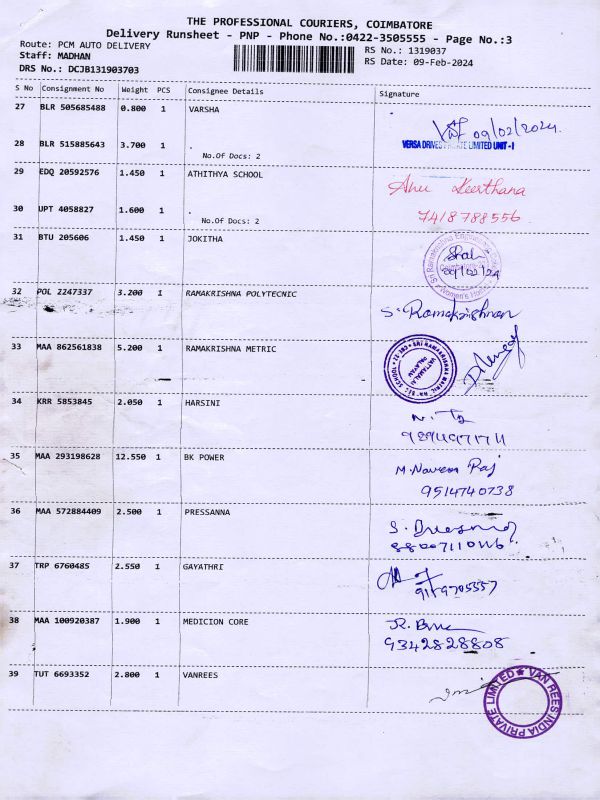 THE PROFESSIONAL COURIERS, COIMBATORE
Delivery Runsheet - PNP - Phone No.:0422-3505555 - Page No.:3
Route: PCM AUTO DELIVERY RS No.: 1319037
Staff: MADHAN RS Date: 09-Feb-2024
DRS No.: DCJB131903703
S No Consignment No Weight PCS Consignee Details Signature
27 BLR 505685488 0.800 1 VARSHA
09/02/2024.
VERSA DRIVES PRIVATE LIMITED UNIT-I
28 BLR 515885643 3.700 1 .
No.Of Docs: 2
29 EDQ 20592576 1.450 1 ATHITHYA SCHOOL
Anu Keerthana
30 UPT 4058827 1.600 1 .
7418788556
No.Of Docs: 2
31 BTU 205606 1.450 1 JOKITHA
09/02/24
32 POL 2247337 3.200 1 RAMAKRISHNA POLYTECNIC
S. Ramakrishnan
33 MAA 862561838 5.200 1 RAMAKRISHNA METRIC
34 KRR 5853845 2.050 1 HARSINI
35 MAA 293198628 12.550 1 BK POWER
M. Naveen Raj
9514740738
36 MAA 572884409 2.500 1 PRESSANNA
37 TRP 6760485 2.550 1 GAYATHRI
38 MAA 100920387 1.900 1 MEDICION CORE
9342828808
39 TUT 6693352 2.800 1 VANREES
VAN REES INDIA PRIVATE LIMITED